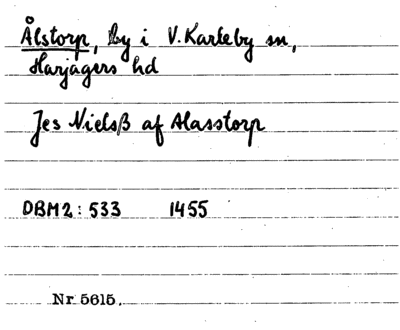 Ålstorp, by i V. Karleby sn,
Harjagers hd
Jes Nielsß af Alasstorp
DBM2: 533 1455
Nr. 5615.